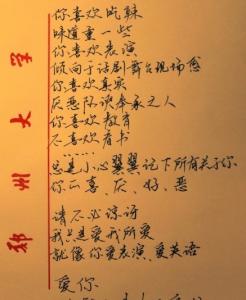 郑州大学
你喜欢吃辣
味道重一些
你喜欢表演
倾向于话剧舞台现场感
你喜欢真实
厌恶阿谀奉承之人
你喜欢教育
不喜欢有书……
总是小心翼翼记下所有关于你
你的喜、厌、好、恶
请不必惊讶
我只是爱我所爱
就像你爱表演、爱英语
爱你